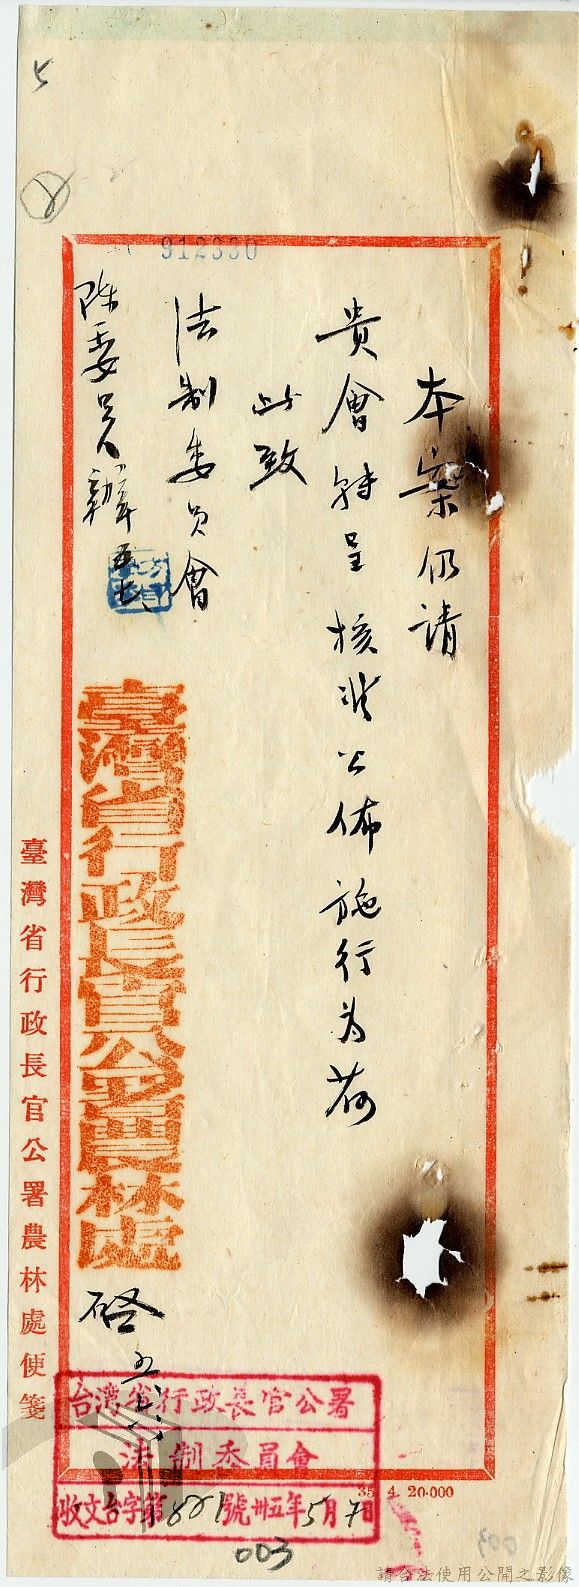 5
912330
本案仍請
貴會轉呈核准公佈施行為荷
此致
法制委員會
陳委員辦 五、七、
臺灣省行政長官公署農林處
啓 五、六、
臺灣省行政長官公署農林處便箋
台灣省行政長官公署
法制委員會
收文台字第821號卅五年5月7日
35. 4. 20.000
003
請合法使用公開之影像